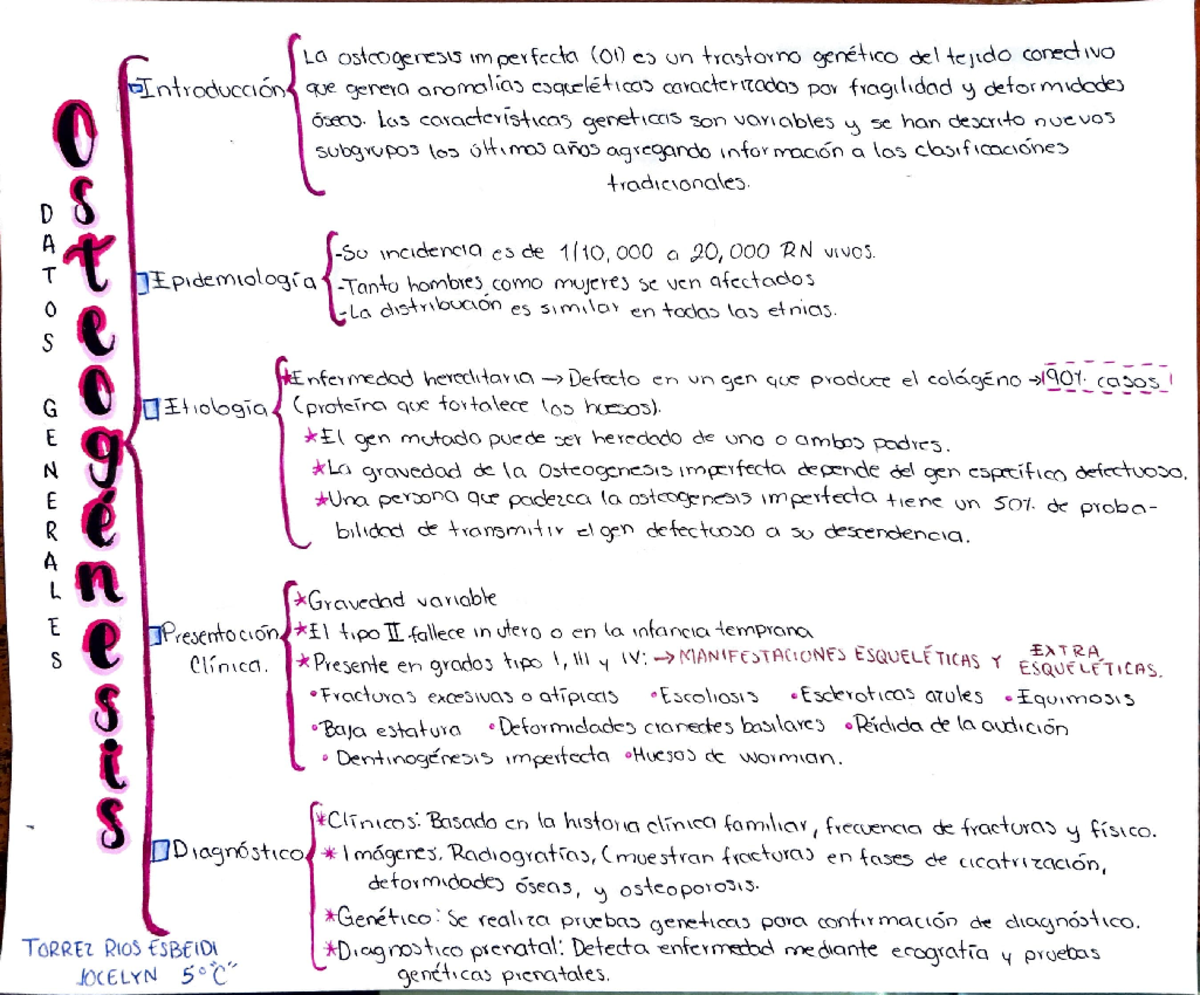 Osteogénesis
DATOS GENERALES
Introducción
La osteogenesis imperfecta (OI) es un trastorno genético del tejido conectivo
que genera anomalías esqueléticas caracterizadas por fragilidad y deformidades
óseas. Las características geneticas son variables y se han descrito nuevos
subgrupos los últimos años agregando información a las clasificaciónes
tradicionales.
Epidemiología
-Su incidencia es de 1/10,000 a 20,000 RN vivos.
-Tanto hombres como mujeres se ven afectados
-La distribución es similar en todas las etnias.
Etiología
*Enfermedad hereditaria → Defecto en un gen que produce el colágéno → 90% casos
(proteína que fortalece los huesos).
*El gen mutado puede ser heredado de uno o ambos padres.
*La gravedad de la Osteogenesis imperfecta depende del gen específico defectuoso.
*Una persona que padezca la osteogenesis imperfecta tiene un 50% de proba-
bilidad de transmitir el gen defectuoso a su descendencia.
Presentación
Clínica.
*Gravedad variable
*El tipo II fallece in utero o en la infancia temprana
*Presente en grados tipo I, III y IV: → MANIFESTACIONES ESQUELÉTICAS Y EXTRA
ESQUELÉTICAS.
•Fracturas excesivas o atípicas •Escoliosis •Escleroticas azules •Equimosis
•Baja estatura •Deformidades craneales basilares •Pérdida de la audición
• Dentinogénesis imperfecta •Huesos de wormian.
Diagnóstico
*Clínicos: Basado en la historia clínica familiar, frecuencia de fracturas y físico.
*Imágenes. Radiografías, (muestran fracturas en fases de cicatrización,
deformidades óseas, y osteoporosis.
*Genético: Se realiza pruebas geneticas para confirmación de diagnóstico.
*Diagnostico prenatal: Detecta enfermedad mediante ecografía y pruebas
genéticas prenatales.
TORREZ RIOS ESBEIDI
JOCELYN 5°"C"